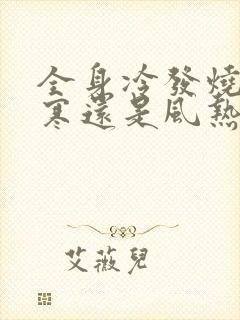 全身冷發燒
寒還是風熱
艾薇兒